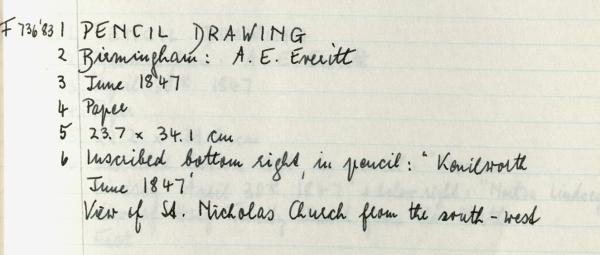 F 736'83 1 PENCIL DRAWING
2 Birmingham: A. E. Everitt
3 June 1847
4 Paper
5 23.7 x 34.1 cm
6 Inscribed bottom right, in pencil: "Kenilworth
June 1847'
View of St. Nicholas Church from the south-west